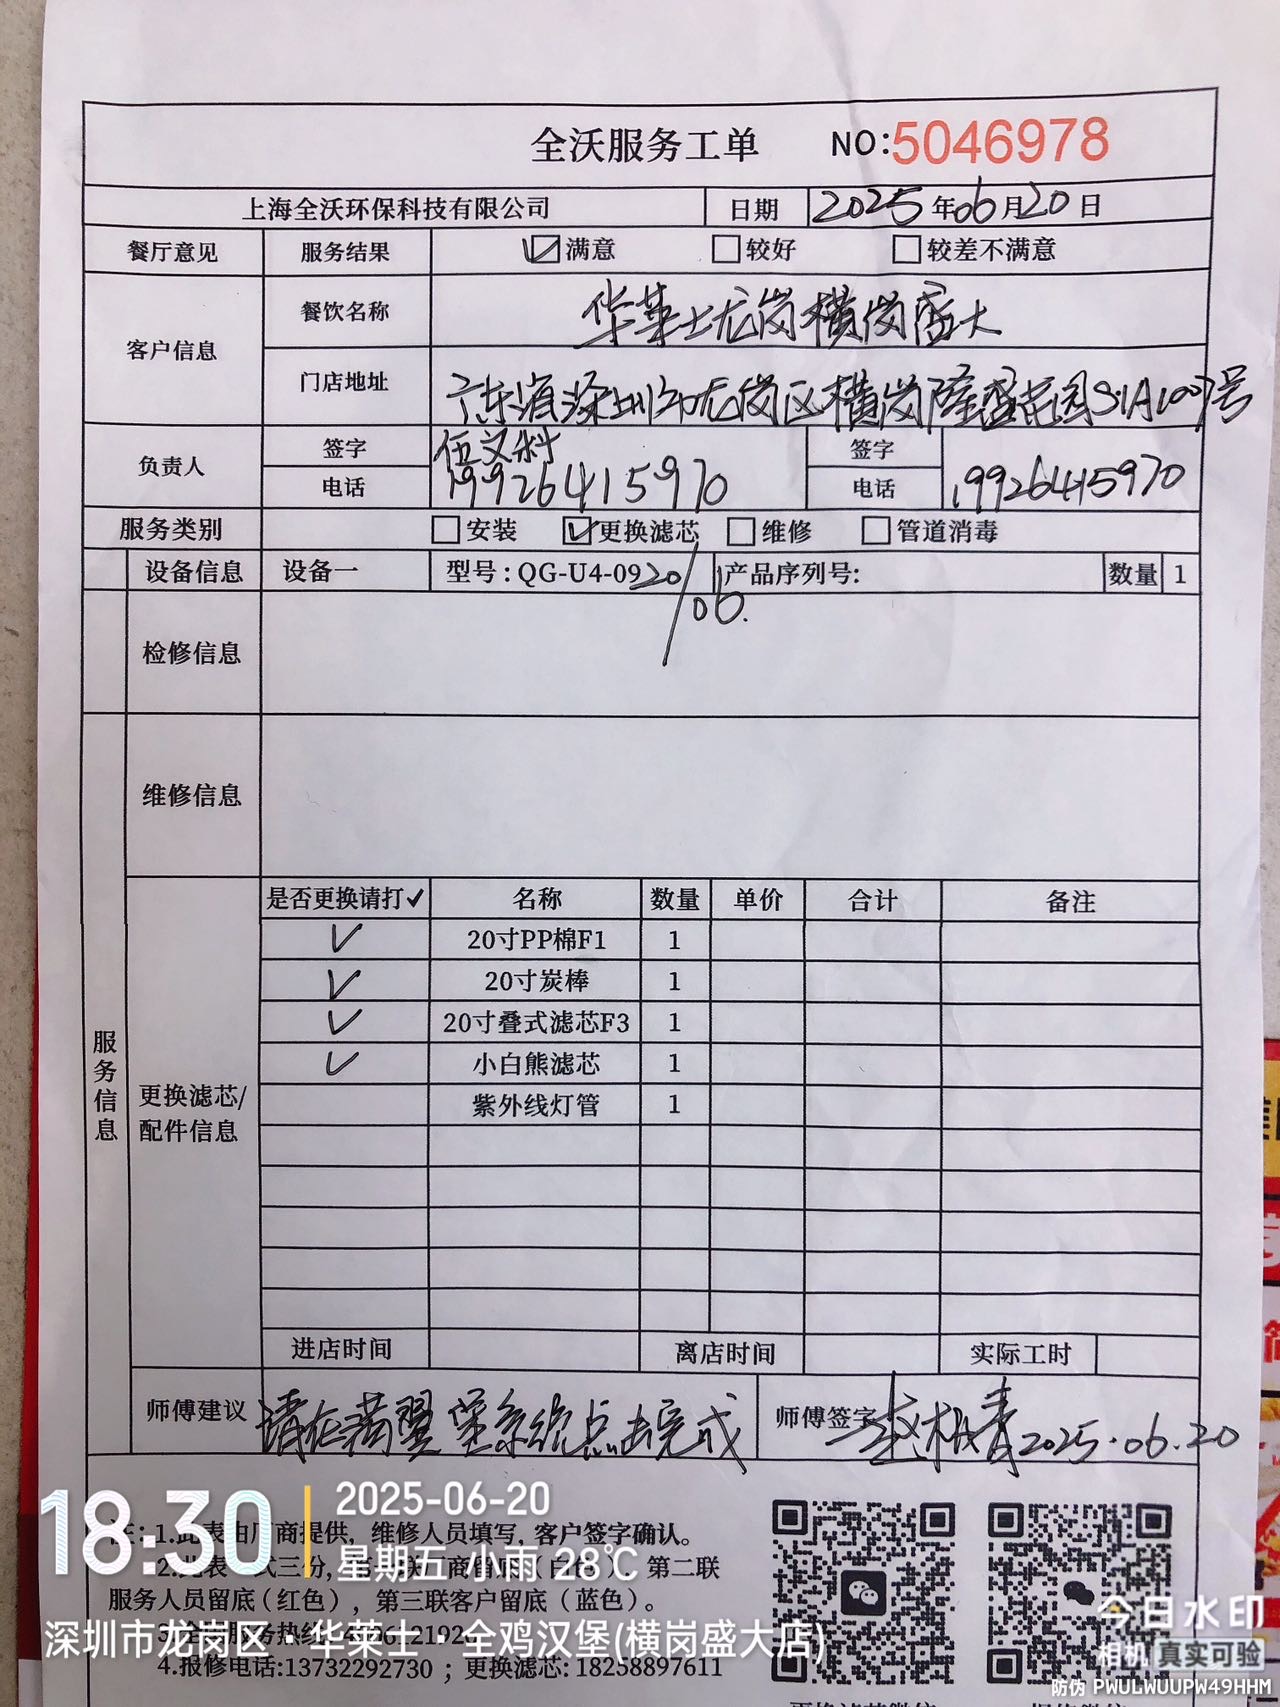 全沃服务工单 NO:5046978
上海全沃环保科技有限公司 日期 2025年06月20日
餐厅意见 服务结果 满意 较好 较差不满意
客户信息 餐饮名称 华莱士龙岗横岗盛大
门店地址 广东省深圳市龙岗区横岗隆盛花园S1A1007号
负责人 签字 伍文科 签字
电话 19926415970 电话 19926415970
服务类别 安装 更换滤芯 维修 管道消毒
设备信息 设备一 型号:QG-U4-09 产品序列号: 数量 1
20/06.
检修信息
维修信息
服务信息
更换滤芯/
配件信息
是否更换请打✓ 名称 数量 单价 合计 备注
✓ 20寸PP棉F1 1
✓ 20寸炭棒 1
✓ 20寸叠式滤芯F3 1
✓ 小白熊滤芯 1
紫外线灯管 1
进店时间 离店时间 实际工时
师傅建议 请在 系统点击完成 师傅签字 赵 青 2025.06.20
注:1.此表由厂商提供,维修人员填写,客户签字确认。
2.此表一式三份, 厂商留底(白色),第二联
服务人员留底(红色),第三联客户留底(蓝色)。
4.报修电话:13732292730 ; 更换滤芯: 18258897611
18:30
2025-06-20
星期五 小雨 28℃
深圳市龙岗区·华莱士·全鸡汉堡(横岗盛大店)
今日水印
相机 真实可验
防伪 PWULWUUPW49HHM